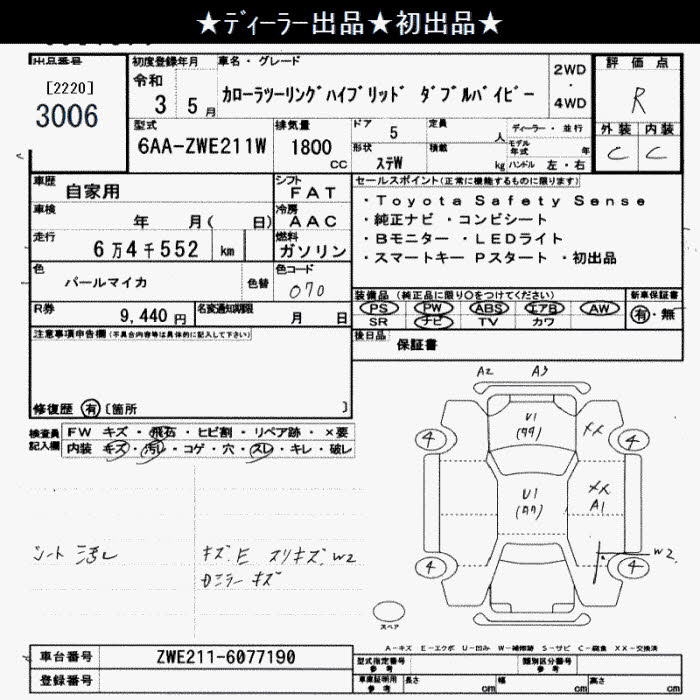 ★ディーラー出品★初出品★
出品番号
[2220]
3006
初度登録年月
令和
3 5月
車名・グレード
カローラツーリングハイブリッド ダブルバイビー
2WD
・
4WD
評価点
R
外装 内装
C C
型式
6AA-ZWE211W
排気量
1800
CC
ドア 5
定員 人
形状 ステW
積載 kg
ディーラー・並行
モデル年式 年
ハンドル 左・右
車歴 自家用
シフト FAT
車検 年 月( 日)
冷房 AAC
走行 6万4千552 km
燃料 ガソリン
色 パールマイカ
色替
色コード 070
R券 9,440円
名変通知期限 月 日
セールスポイント(正常に機能するものに限ります)
・Toyota Safety Sense
・純正ナビ ・コンビシート
・Bモニター ・LEDライト
・スマートキー Pスタート ・初出品
装備品 (純正品に限り○をつけてください)
PS PW ABS エアB AW
SR ナビ TV カワ
新車保証書
有・無
後日品 保証書
注意事項申告欄(不具合内容等は具体的に記入して下さい)
修復歴 有 〔箇所 〕
検査員記入欄
FW キズ・飛石・ヒビ割・リペア跡・×要
内装 キズ・汚れ・コゲ・穴・スレ・キレ・破レ
シート 汚レ
キズ.E スリキズ.W2
カニラー キズ
A2 A3
U1
(タタ)
XX
4 4
U1
(タタ)
XX
A1
W2
4 4
スペア
A-キズ E-エクボ U-凹み W-補修跡 S-サビ C-腐食 XX-交換済
車台番号 ZWE211-6077190
登録番号
型式指定番号 参考
類別区分番号 参考
車庫証明用 参考
長さ cm 幅 cm 高さ cm